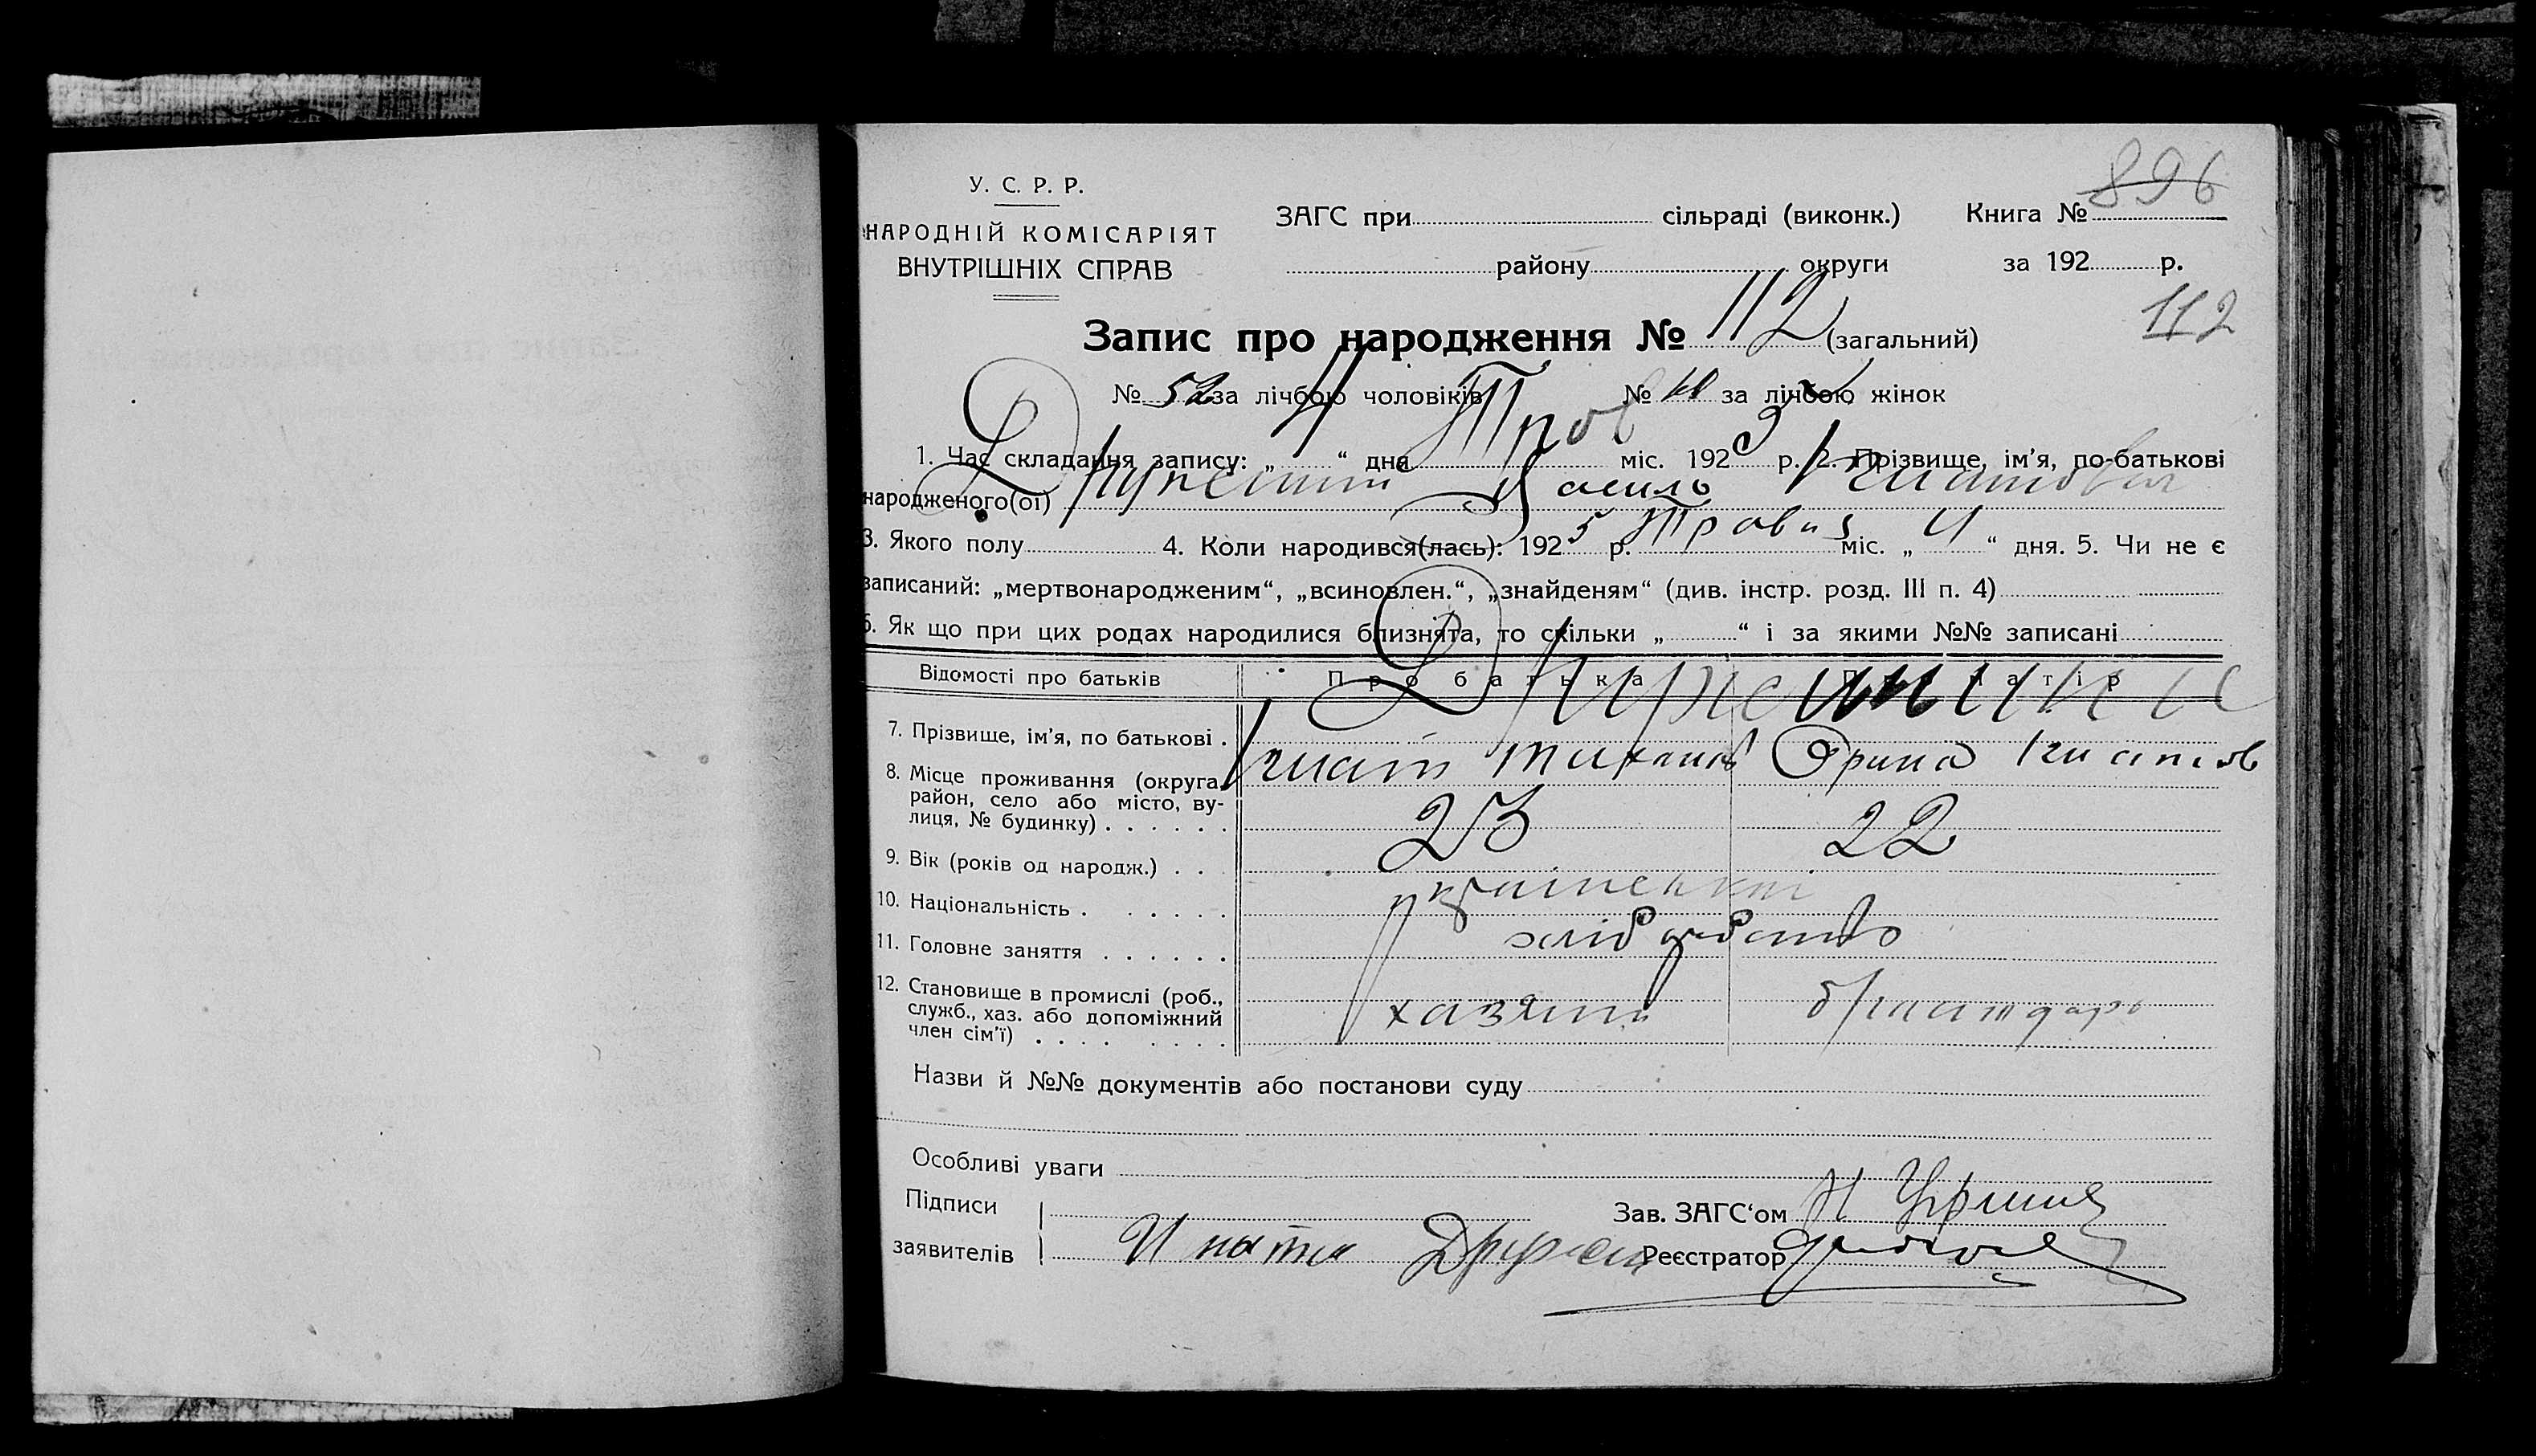 896
У. С. Р. Р.
НАРОДНІЙ КОМІСАРІЯТ
ВНУТРІШНІХ СПРАВ
ЗАГС при сільраді (виконк.) Книга №
району округи за 192 р.
112
Запис про народження № 112 (загальний)
№ 52 за лічбою чоловіків № за лічбою жінок
1. Час складання запису: „ 4 “ дня Трав міс. 192 р. 2. Прізвище, ім'я, по-батькові
народженого(ої) Василь Гнатович
3. Якого полу 4. Коли народився(лась): 1925 р. Травня міс. „ 4 “ дня. 5. Чи не є
записаний: „мертвонародженим“, „всиновлен.“, „знайденям“ (див. інстр. розд. III п. 4)
6. Як що при цих родах народилися близнята, то скільки „ “ і за якими №№ записані
Відомості про батьків Про батька Про матір
7. Прізвище, ім'я, по батькові .
Гнат Тихонов Орина Гнатов
8. Місце проживання (округа,
район, село або місто, ву-
лиця, № будинку) . . . . . .
9. Вік (років од народж.) . . . 23 22
10. Національність . . . . . . українські
11. Головне заняття . . . . . . хлібробство
12. Становище в промислі (роб.,
служб., хаз. або допоміжний
член сім'ї) . . . . . . . . хазяїн
Назви й №№ документів або постанови суду
Особливі уваги
Підписи
заявителів
Зав. ЗАГС‘ом
Реєстратор